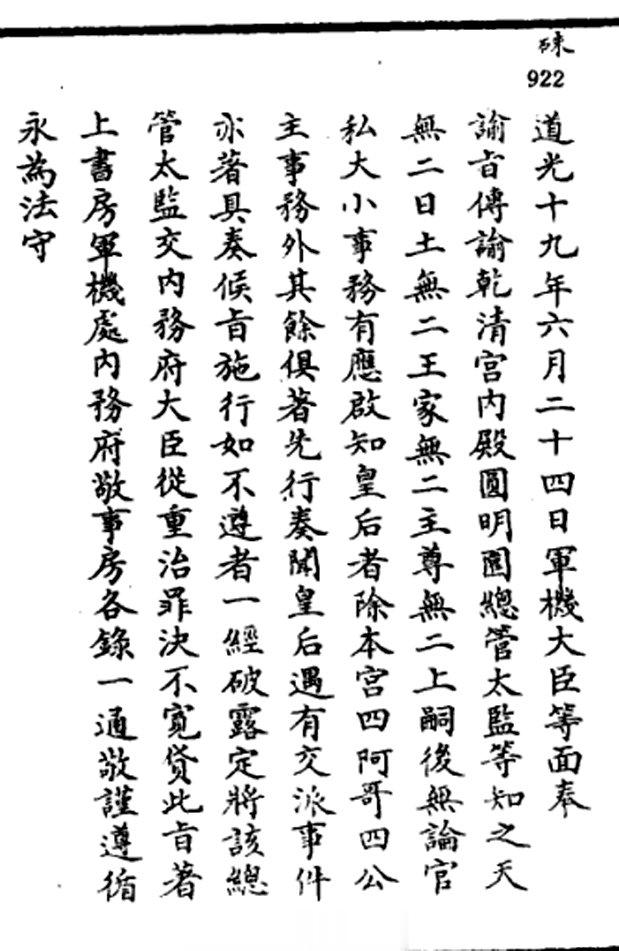 硃
922
道光十九年六月二十四日軍機大臣等面奉
諭旨傳諭乾清宮內殿圓明園總管太監等知之天
無二日土無二王家無二主尊無二上嗣後無論官
私大小事務有應啟知皇后者除本宮四阿哥四公
主事務外其餘俱著先行奏聞皇后遇有交派事件
亦著具奏候旨施行如不遵者一經破露定將該總
管太監交內務府大臣從重治罪決不寬貸此旨著
上書房軍機處內務府敬事房各錄一通敬謹遵循
永為法守